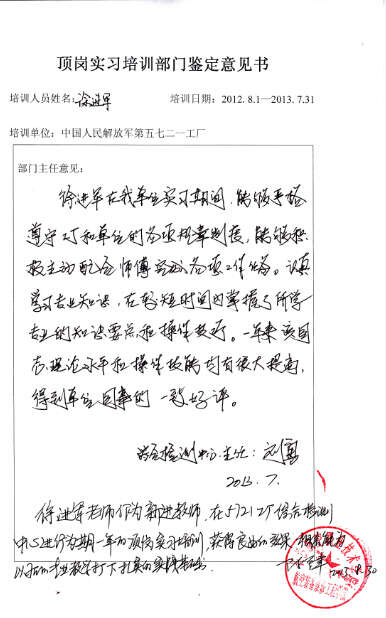 顶岗实习培训部门鉴定意见书
培训人员姓名：徐进军 培训日期：2012.8.1—2013.7.31
培训单位：中国人民解放军第五七二一工厂
部门主任意见：
徐进军在我单位实习期间，能够严格
遵守工厂和单位的各项规章制度，能够积
极主动配合师傅完成各项工作任务。认真
学习专业知识，在较短时间内掌握了所学
专业的知识要点和操作技巧。一年来该同
志理论水平和操作技能均有很大提高，
得到单位同事的一致好评。
检测中心主任：
2013.7.
徐进军老师作为新进教师，在5721工厂综合检测
中心进行为期一年的顶岗实习培训，获得良好的效果，
以后的专业教学打下扎实的实践基础。
2013.8.30